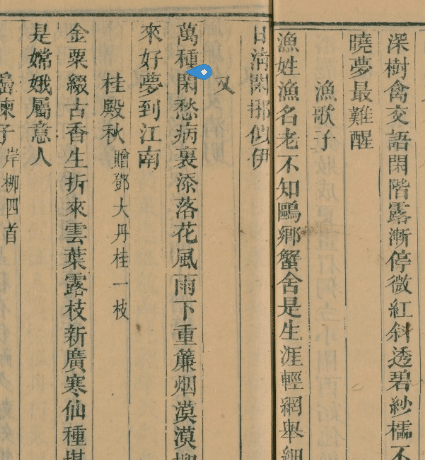 深樹禽交語閑階露漸停微紅斜透碧紗櫺不
曉夢最難醒
漁歌子
漁姓漁名老不知鷗鄉蟹舍是生涯輕網舉細
甘清閑
似伊
又
萬種閑愁病裏添落花風雨下重簾烟漠漠
來好夢到江南
桂殿秋 贈鄧大丹桂一枝
金粟綴古香生折來雲葉露枝新廣寒仙種
是嫦娥屬意人
子 岸柳四首